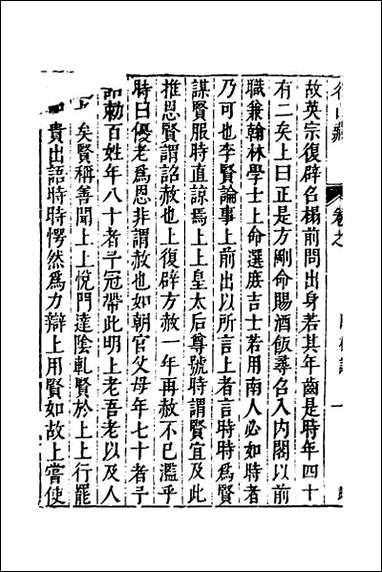 名山藏
卷之
一
故英宗復辟名榻前問出身若其年齒是時年四十
有二矣上曰正是方剛命賜酒飯尋名入內閣以前
職兼翰林學士上命選庶吉士若用南人必如時者
乃可也李賢論事上前出以所言上者言時時為賢
謀賢服時直諒焉上上皇太后尊號時謂賢宜及此
推恩賢謂詔赦也上復辟方赦一年再赦不已濫乎
時曰優老為恩非謂赦也如朝官父母年七十者予
勅百姓年八十者予冠帶此明上老吾老以及人
矣賢稱善聞上上悅門達陰軋賢於上上行罷
貴出語時時愕然為力辯上用賢如故上嘗使